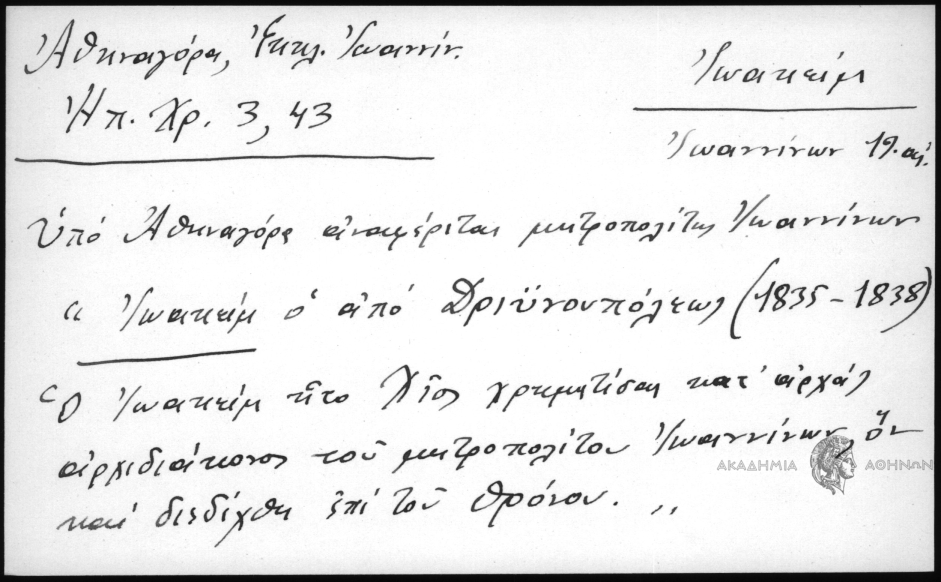 Ἀθηναγόρα, Ἐκκλ. Ἰωαννίν.
Ἠπ. Χρ. 3, 43
Ἰωακείμ
Ἰωαννίνων 19. αἰ.
Ὑπό Ἀθηναγόρα ἀναφέρεται μητροπολίτης Ἰωαννίνων
" Ἰωακείμ ὁ ἀπό Δρυϊνουπόλεως (1835 - 1838)
Ὁ Ἰωακείμ ἦτο Χῖος χρηματίσας κατ' ἀρχάς
ἀρχιδιάκονος τοῦ μητροπολίτου Ἰωαννίνων, ὅν
καί διεδέχθη ἐπί τοῦ θρόνου. "
ΑΚΑΔΗΜΙΑ ΑΘΗΝΩΝ